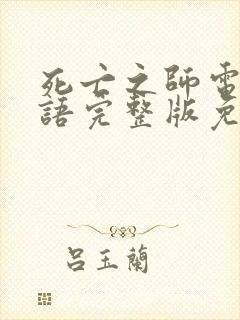 死亡之師電
語完整版免
呂玉蘭